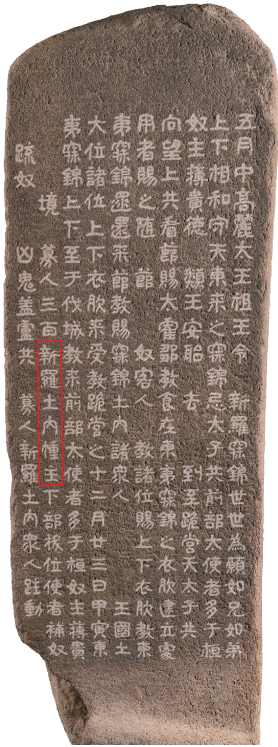 五月中高麗太王祖王令 新羅寐錦世世為願如兄如弟
上下相和守天東来之寐錦忌太子共前部太使者多于桓
奴主薄貴德 類王安聆 去 到至跪営天太子共
向望上共看節賜太霍鄒教食在東東寐錦之衣服建立處
用者賜之随 節 奴客人 教諸位賜上下衣服教東
夷寐錦逐還来節教賜寐錦土内諸衆人 王國土
大位諸位上下衣服来受教跪営之十二月廿三日甲寅東
夷寐錦上下至于伐城教来前部太使者多于桓奴主薄貴
境 募人三百新羅土内幢主下部拔位使者補奴
疏奴 凶鬼盖盧共 募人新羅土内衆人跓動